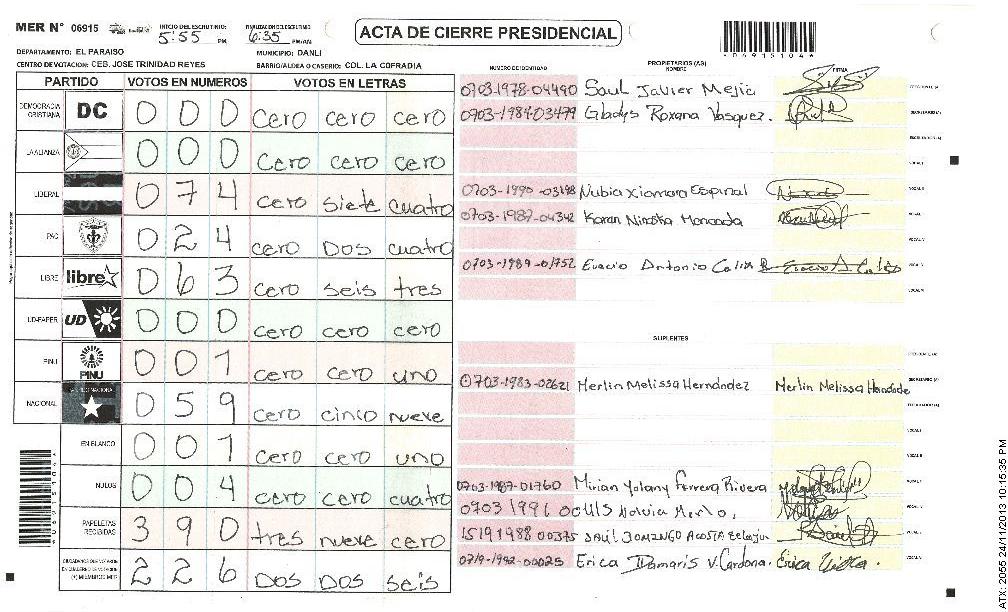 MER N° 06915 INICIO DEL ESCRUTINIO: 5:55 PM FINALIZACION DEL ESCRUTINIO 6:35 PM/AM
ACTA DE CIERRE PRESIDENCIAL
DEPARTAMENTO: EL PARAISO MUNICIPIO: DANLI
CENTRO DE VOTACION: CEB. JOSE TRINIDAD REYES BARRIO/ALDEA O CASERIO: COL. LA COFRADIA
PARTIDO VOTOS EN NUMEROS VOTOS EN LETRAS
DEMOCRACIA CRISTIANA DC 0 0 0 cero cero cero
LA ALIANZA 0 0 0 cero cero cero
LIBERAL 0 7 4 cero siete cuatro
PAC 0 2 4 cero DOS cuatro
LIBRE libre 0 6 3 cero seis tres
UD-FAPER UD 0 0 0 cero cero cero
PINU PINU 0 0 1 cero cero uno
NACIONAL 0 5 9 cero cinco nueve
EN BLANCO 0 0 1 cero cero uno
NULOS 0 0 4 cero cero cuatro
PAPELETAS RECIBIDAS 3 9 0 tres nueve cero
CIUDADANOS QUE VOTARON EN CUADERNO DE VOTACION (+) MIEMBROS MER 2 2 6 DOS DOS seis
NUMERO DE IDENTIDAD PROPIETARIOS (AS) NOMBRE FIRMA
0703-1978-04490 Saul Javier Mejia
0703-1984-03479 Gladys Roxana Vasquez.
0703-1990-03198 Nubia Xiomara Espinal
0703-1987-04342 Karen
0703-1989-01752 Antonio
SUPLENTES
0703-1983-02621 Merlin Melissa Hernández Merlin Melissa Hernández
0703-1987-01760 Mirian Yolany Ferrera Rivera
0703 1991
15191988 00375 SAUL DOMINGO ACOSTA
0719-1992-00025 Erica Damaris V. Cardona. Erica
ATX: 2055 24/11/2013 10:15:35 PM